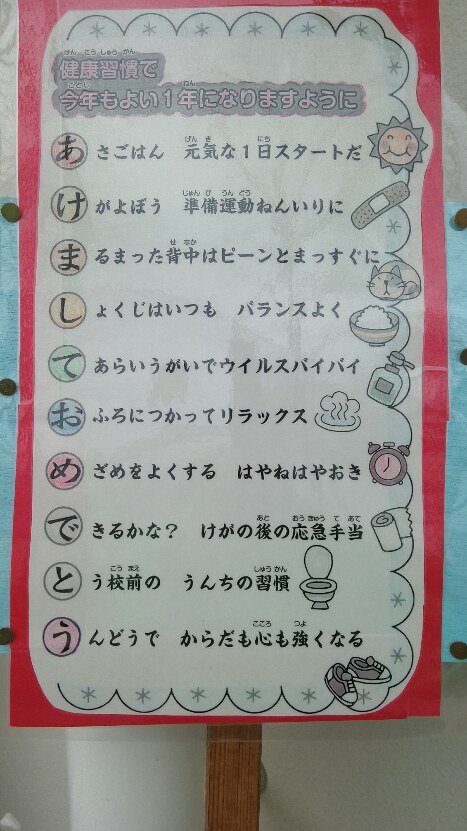 健康習慣で
今年もよい1年になりますように
あさごはん 元気な1日スタートだ
けがよぼう 準備運動ねんいりに
まるまった背中はピーンとまっすぐに
しょくじはいつも バランスよく
てあらいうがいでウイルスバイバイ
おふろにつかってリラックス
めざめをよくする はやねはやおき
できるかな? けがの後の応急手当
とう校前の うんちの習慣
うんどうで からだも心も強くなる